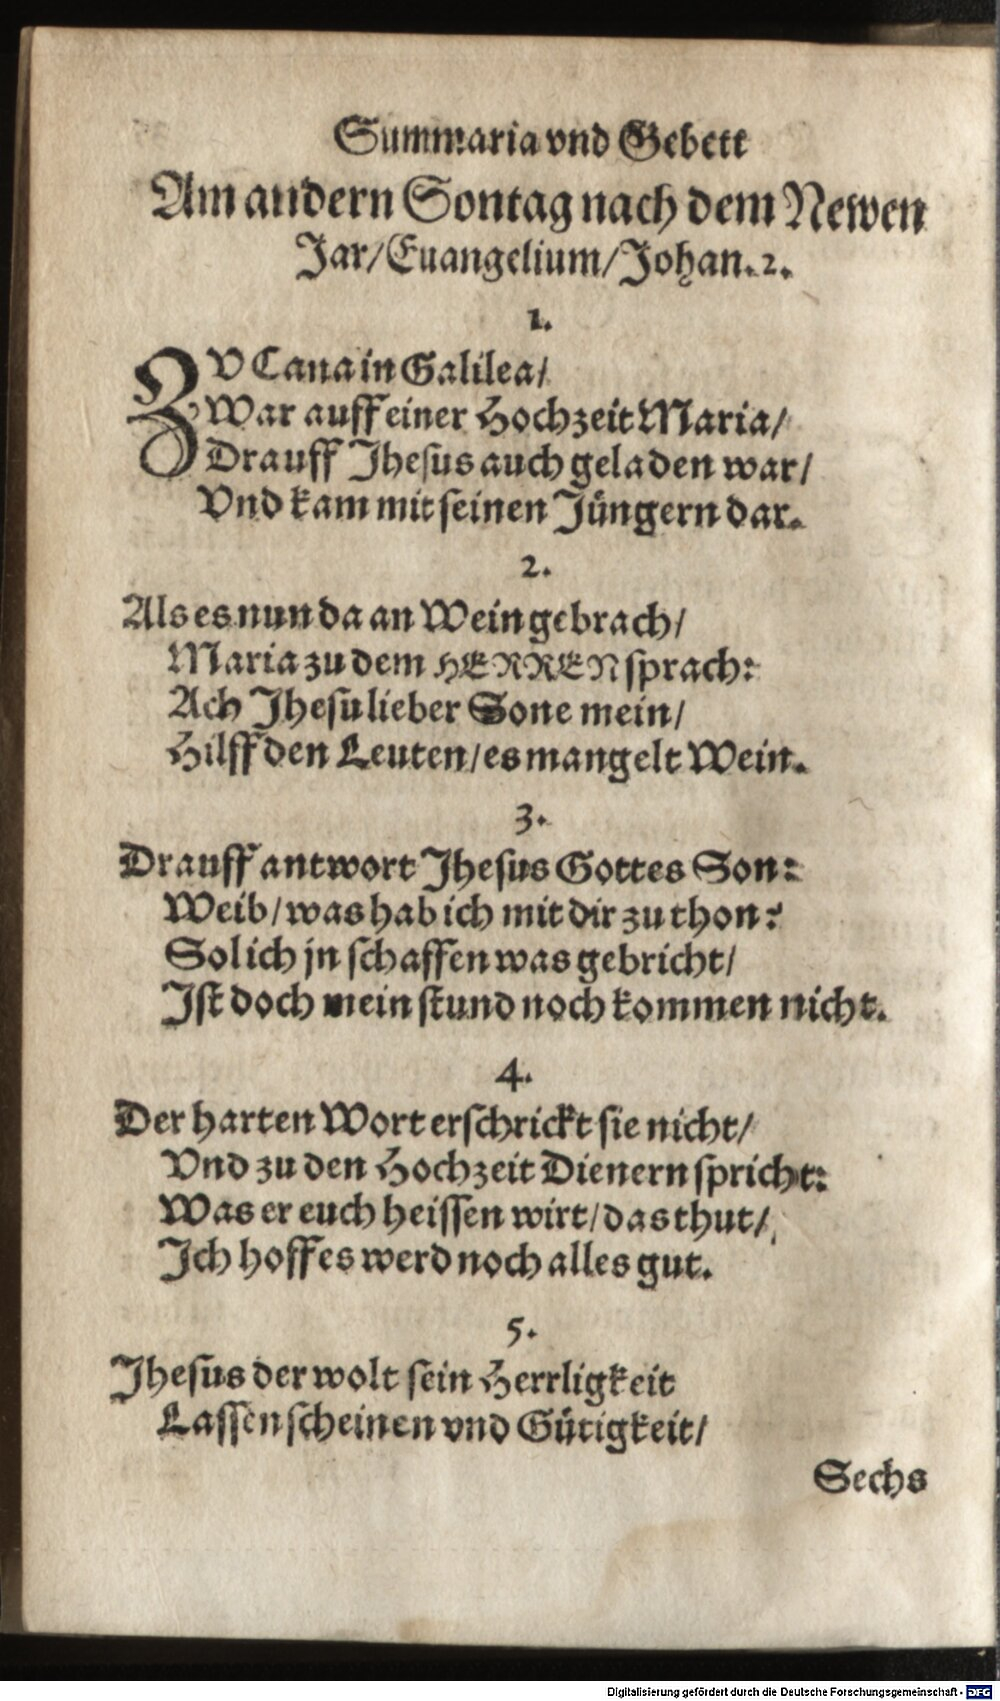 Summaria vnd Gebett
Am andern Sontag nach dem Newen
Jar/Euangelium/Johan. 2.
1.
ZV Cana in Galilea/
War auff einer Hochzeit Maria/
Drauff Jhesus auch geladen war/
Vnd kam mit seinen Jüngern dar.
2.
Als es nun da an Wein gebrach/
Maria zu dem HERREN sprach:
Ach Jhesu lieber Sone mein/
Hilff den Leuten/es mangelt Wein.
3.
Drauff antwort Jhesus Gottes Son:
Weib/was hab ich mit dir zu thon?
Sol ich jn schaffen was gebricht/
Jst doch mein stund noch kommen nicht.
4.
Der harten Wort erschrickt sie nicht/
Vnd zu den Hochzeit Dienern spricht:
Was er euch heissen wirt/das thut/
Jch hoff es werd noch alles gut.
5.
Jhesus der wolt sein Herrligkeit
Lassen scheinen vnd Gütigkeit/
Sechs
Digitalisierung gefördert durch die Deutsche Forschungsgemeinschaft - DFG